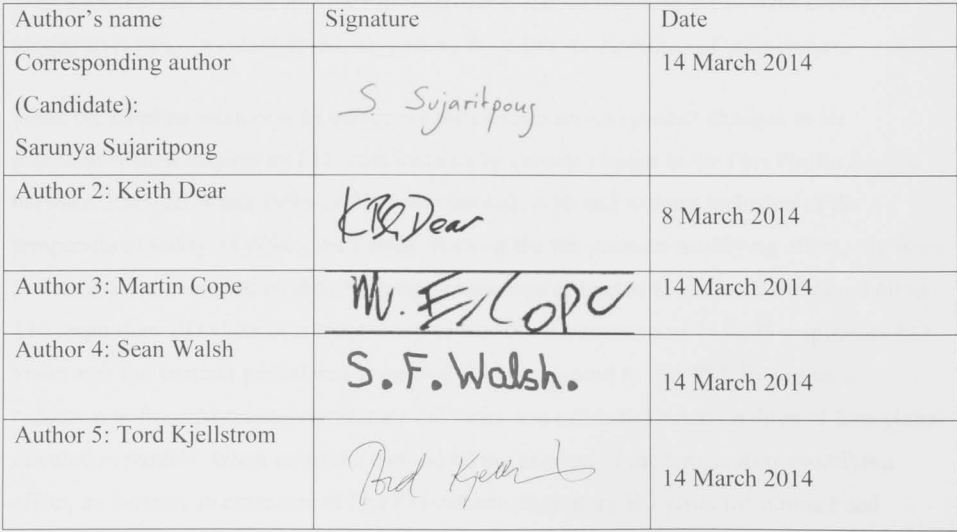 Author's name Signature Date
Corresponding author 14 March 2014
(Candidate): S Sujaritpong
Sarunya Sujaritpong
Author 2: Keith Dear KBGDear 8 March 2014
Author 3: Martin Cope M. E. Cope 14 March 2014
Author 4: Sean Walsh S. F. Walsh. 14 March 2014
Author 5: Tord Kjellstrom Tord 14 March 2014